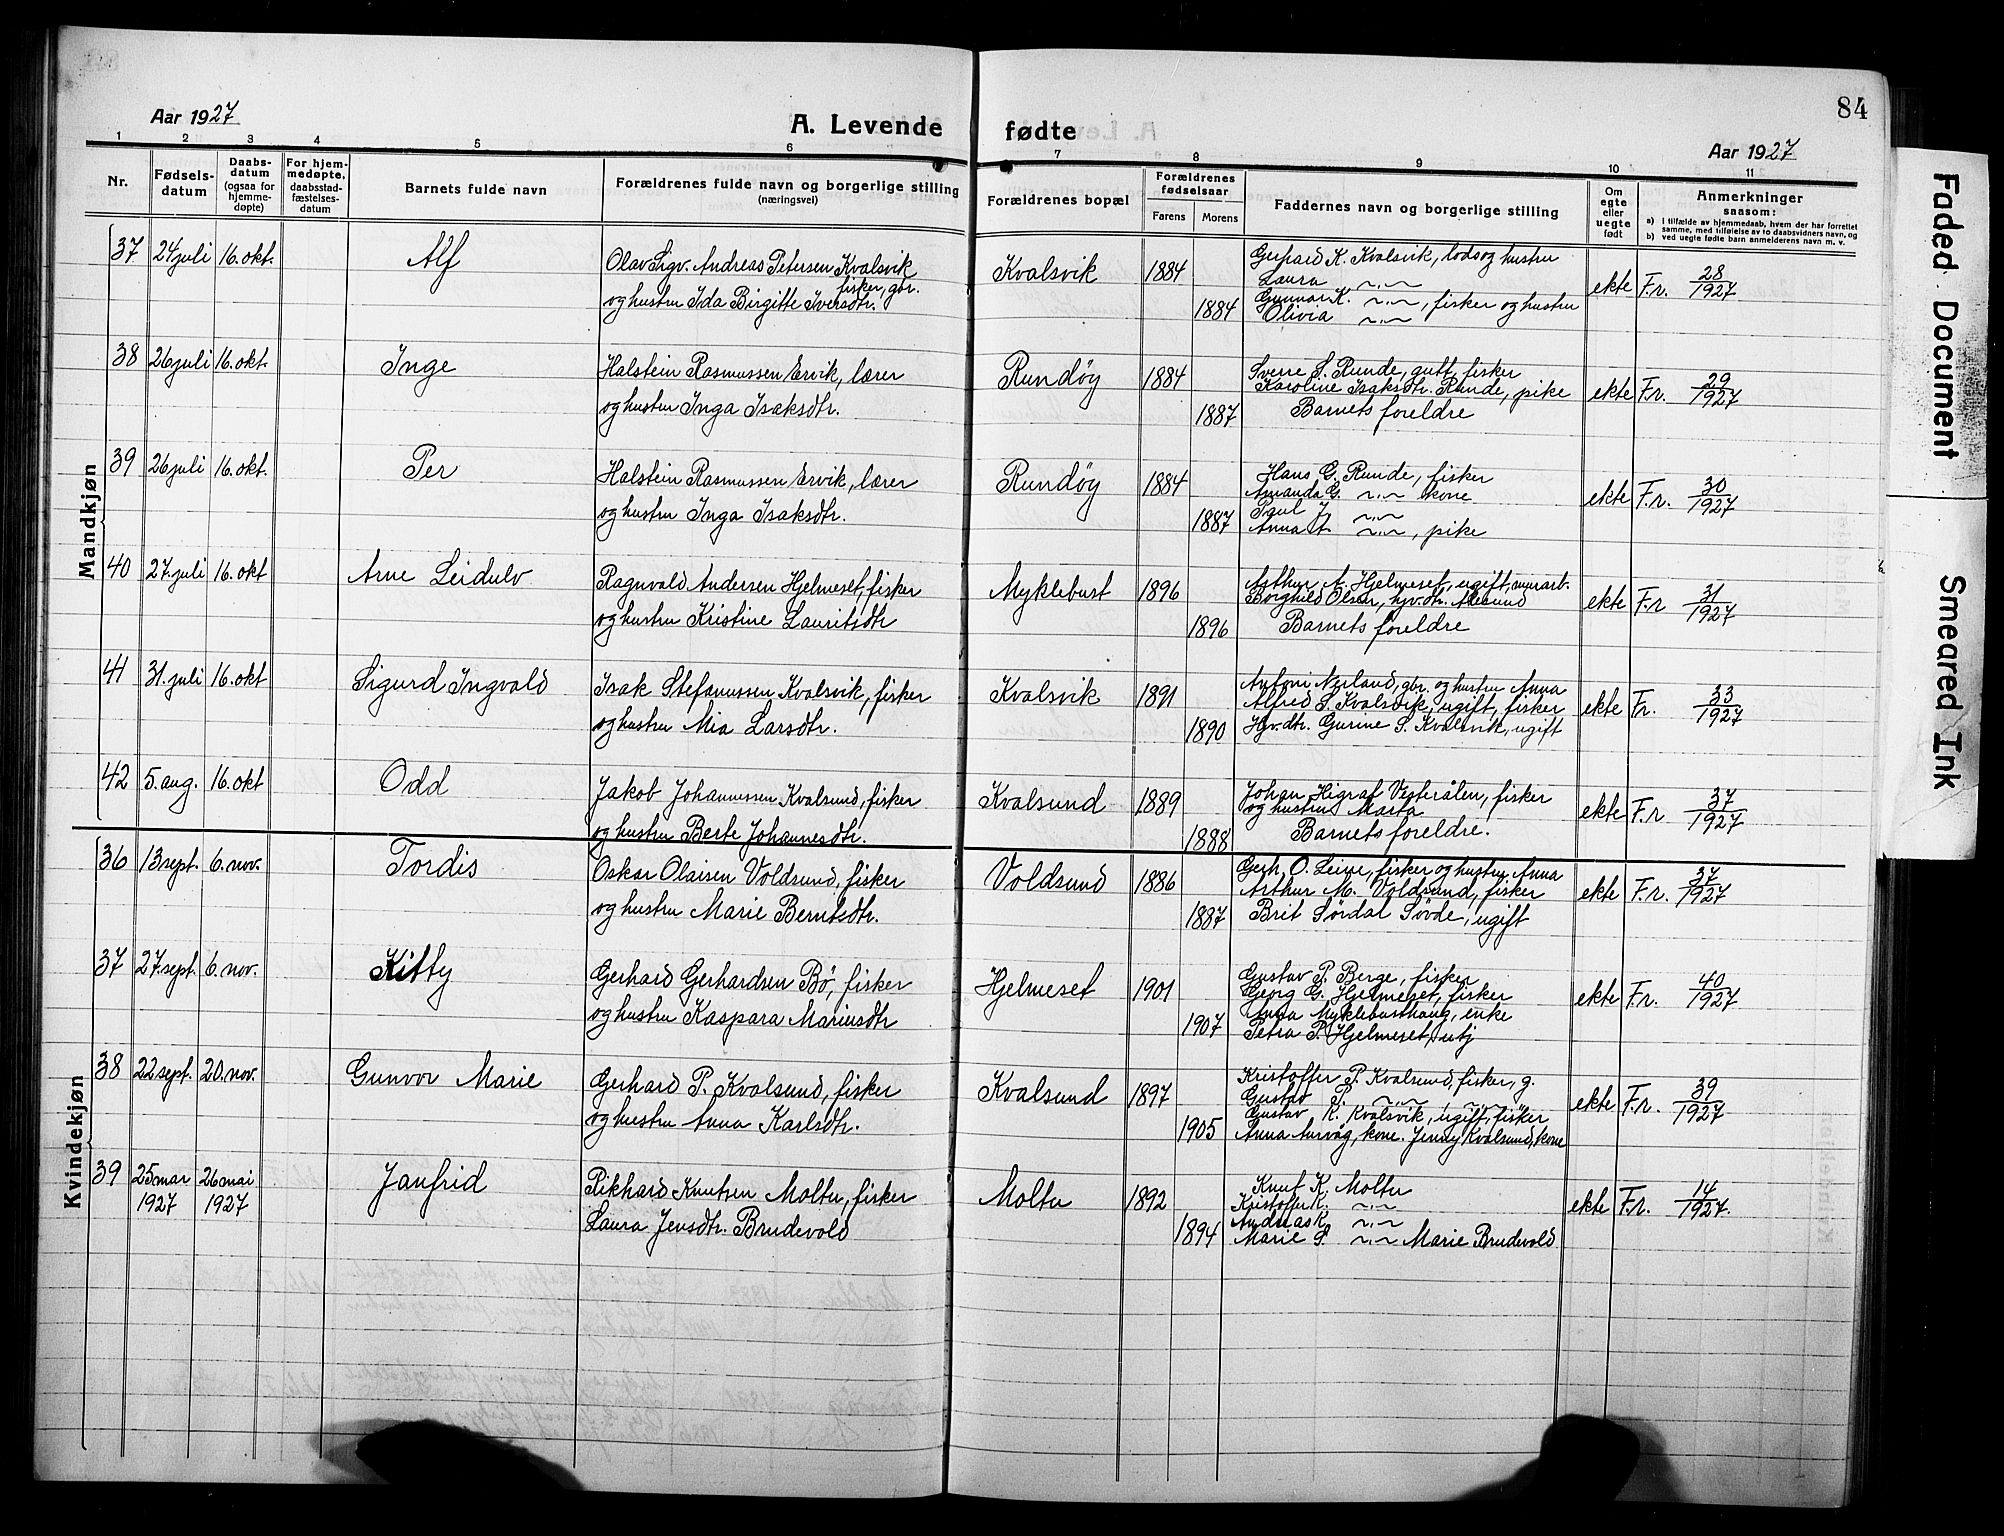 84
Aar 1927
A. Levende fødte
Aar 1927
1 2 3 4 5 6 7 8 9 10 11
Nr.
Fødsels-
datum
Daabs-
datum
(ogsaa for
hjemme-
døpte)
For hjem-
medøpte,
daabsstad-
fæstelses-
datum
Barnets fulde navn
Forældrenes fulde navn og borgerlige stilling
(næringsvei)
Forældrenes bopæl
Forældrenes
fødselsaar
Farens Morens
Faddernes navn og borgerlige stilling
Om
egte
eller
uegte
født
Anmerkninger
saasom:
a) I tilfælde av hjemmedaab, hvem der har forrettet
samme, med tilføielse av to daabsvidners navn, og
b) ved uegte fødte barn anmelderens navn m. v.
Mandkjøn
37 24 juli 16. okt. Alf
Olav Sigv. Andreas Petersen Kvalsvik
fisker, gbr.
og hustru Ida Birgitte Iversdtr.
Kvalsvik 1884 1884
Gerhard K. Kvalsvik, lods og hustru
Laura ~"~
Gunnar K. ~"~, fisker og hustru
Olivia ~"~
ekte F.r. 28/1927
38 26 juli 16. okt. Inge
Halstein Rasmussen Ervik, lærer
og hustru Inga Isaksdtr.
Rundøy 1884 1887
Sverre S. Runde, gutt, fisker
Karoline Isaksdtr. Runde, pike
Barnets foreldre
ekte F.r. 29/1927
39 26 juli 16. okt. Per
Halstein Rasmussen Ervik, lærer
og hustru Inga Isaksdtr.
Rundøy 1884 1887
Hans G. Runde, fisker
Amanda G. ~"~ kone
Paul J. ~"~
Anna A. ~"~, pike
ekte F.r. 30/1927
40 27. juli 16. okt Arne Leidulv
Ragnvald Andersen Hjelmeset, fisker
og hustru Kristine Lauritsdtr
Myklebust 1896 1896
Arthur A. Hjelmeset, ugift, murarb.
Borghild Olsen, hjv. dtr. Ålesund
Barnets foreldre
ekte F.r 31/1927
41 31. juli 16. okt Sigurd Ingvald
Isak Stefanussen Kvalsvik, fisker
og hustru Mia Larsdtr.
Kvalsvik 1891 1890
Antoni Nerland, gbr. og hustru Anna
Alfred S. Kvalsvik, ugift, fisker
Hjv. dtr. Gurine S. Kvalsvik, ugift
ekte Fr. 33/1927
42 5. aug. 16. okt Odd
Jakob Johannessen Kvalsund, fisker
og hustru Berte Johannesdtr.
Kvalsund 1889 1888
Johan Vesterålen, fisker
og hustru Marta
Barnets foreldre.
ekte F.r 37/1927
Kvindekjøn
36 13 sept. 6. nov. Tordis
Oskar Olaisen Voldsund, fisker
og hustru Marie Berntsdtr.
Voldsund 1886 1887
Gerh. O. Leine, fisker og hustru Anna
Arthur M. Voldsund, fisker
Brit Sørdal Søvde, ugift
ekte F.r. 37/1927
37 27. sept. 6. nov. Kitty
Gerhard Gerhardsen Bø, fisker
og hustru Kaspara Mariusdtr
Hjelmeset 1901 1907
Gustav P. Berge, fisker
Georg G. Hjelmeset, fisker
Anna Myklebusthaug, enke
Petra P. Hjelmeset, utj
ekte F.r. 40/1927
38 22 sept. 20. nov. Gunvor Marie
Gerhard P. Kvalsund, fisker
og hustru Anna Karlsdtr.
Kvalsund 1897 1905
Kristoffer P. Kvalsund, fisker, g.
Gustav P. ~"~
Gustav K. Kvalsvik, ugift, fisker
Anna Aurvåg, kone. Jenny Kvalsund, kone
ekte F.r. 39/1927
39 25 mar 1927 26 mai 1927 Janfrid
Rikhard Knutsen Moltu, fisker
Laura Jensdtr. Brudevold
Moltu 1892 1894
Knut K. Moltu
Kristoffer K. ~"~
Andreas K. ~"~
Marie S. ~"~ Marie Brudevold
ekte F.r. 14/1927.
Faded Document
Smeared Ink